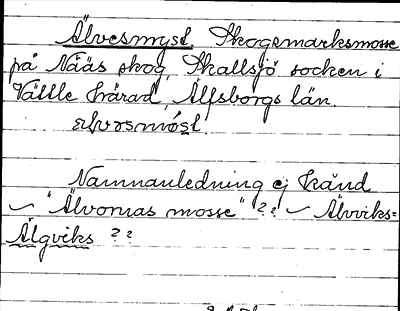 Älvesmysl. Skogsmarksmosse
på Nääs skog, Skallsjö socken i
Vättle härad, Älfsborgs län.
elvəsmósl.
Namnanledning ej känd
~ "Älvornas mosse" ?? ~ Älvviks=
Älgviks ??